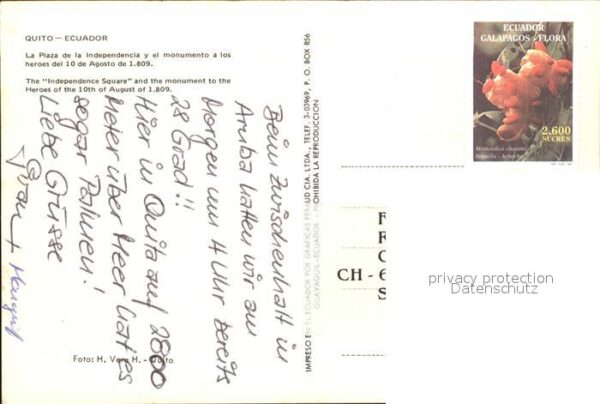 QUITO — ECUADOR
La Plaza de la Independencia y el monumento a los
heroes del 10 de Agosto de 1.809.
The "Independence Square" and the monument to the
Heroes of the 10th of August of 1.809.
Beim Zwischenhalt in
Aruba hatten wir am
Morgen um 4 Uhr bereits
28 Grad!!
Hier in Quito auf 2800
Meter über Meer hat es
sogar Palmen!
Liebe Grüsse
Foto: H. Vera H. - Quito
IMPRESO EN EL ECUADOR POR GRAFICAS CIA. LTDA., TELEF. 3-03969, P. O. BOX 856
GUAYAQUIL - ECUADOR - PROHIBIDA LA REPRODUCCION
ECUADOR
GALAPAGOS - FLORA
2.600
SUCRES
CH - 6
S
privacy protection
Datenschutz